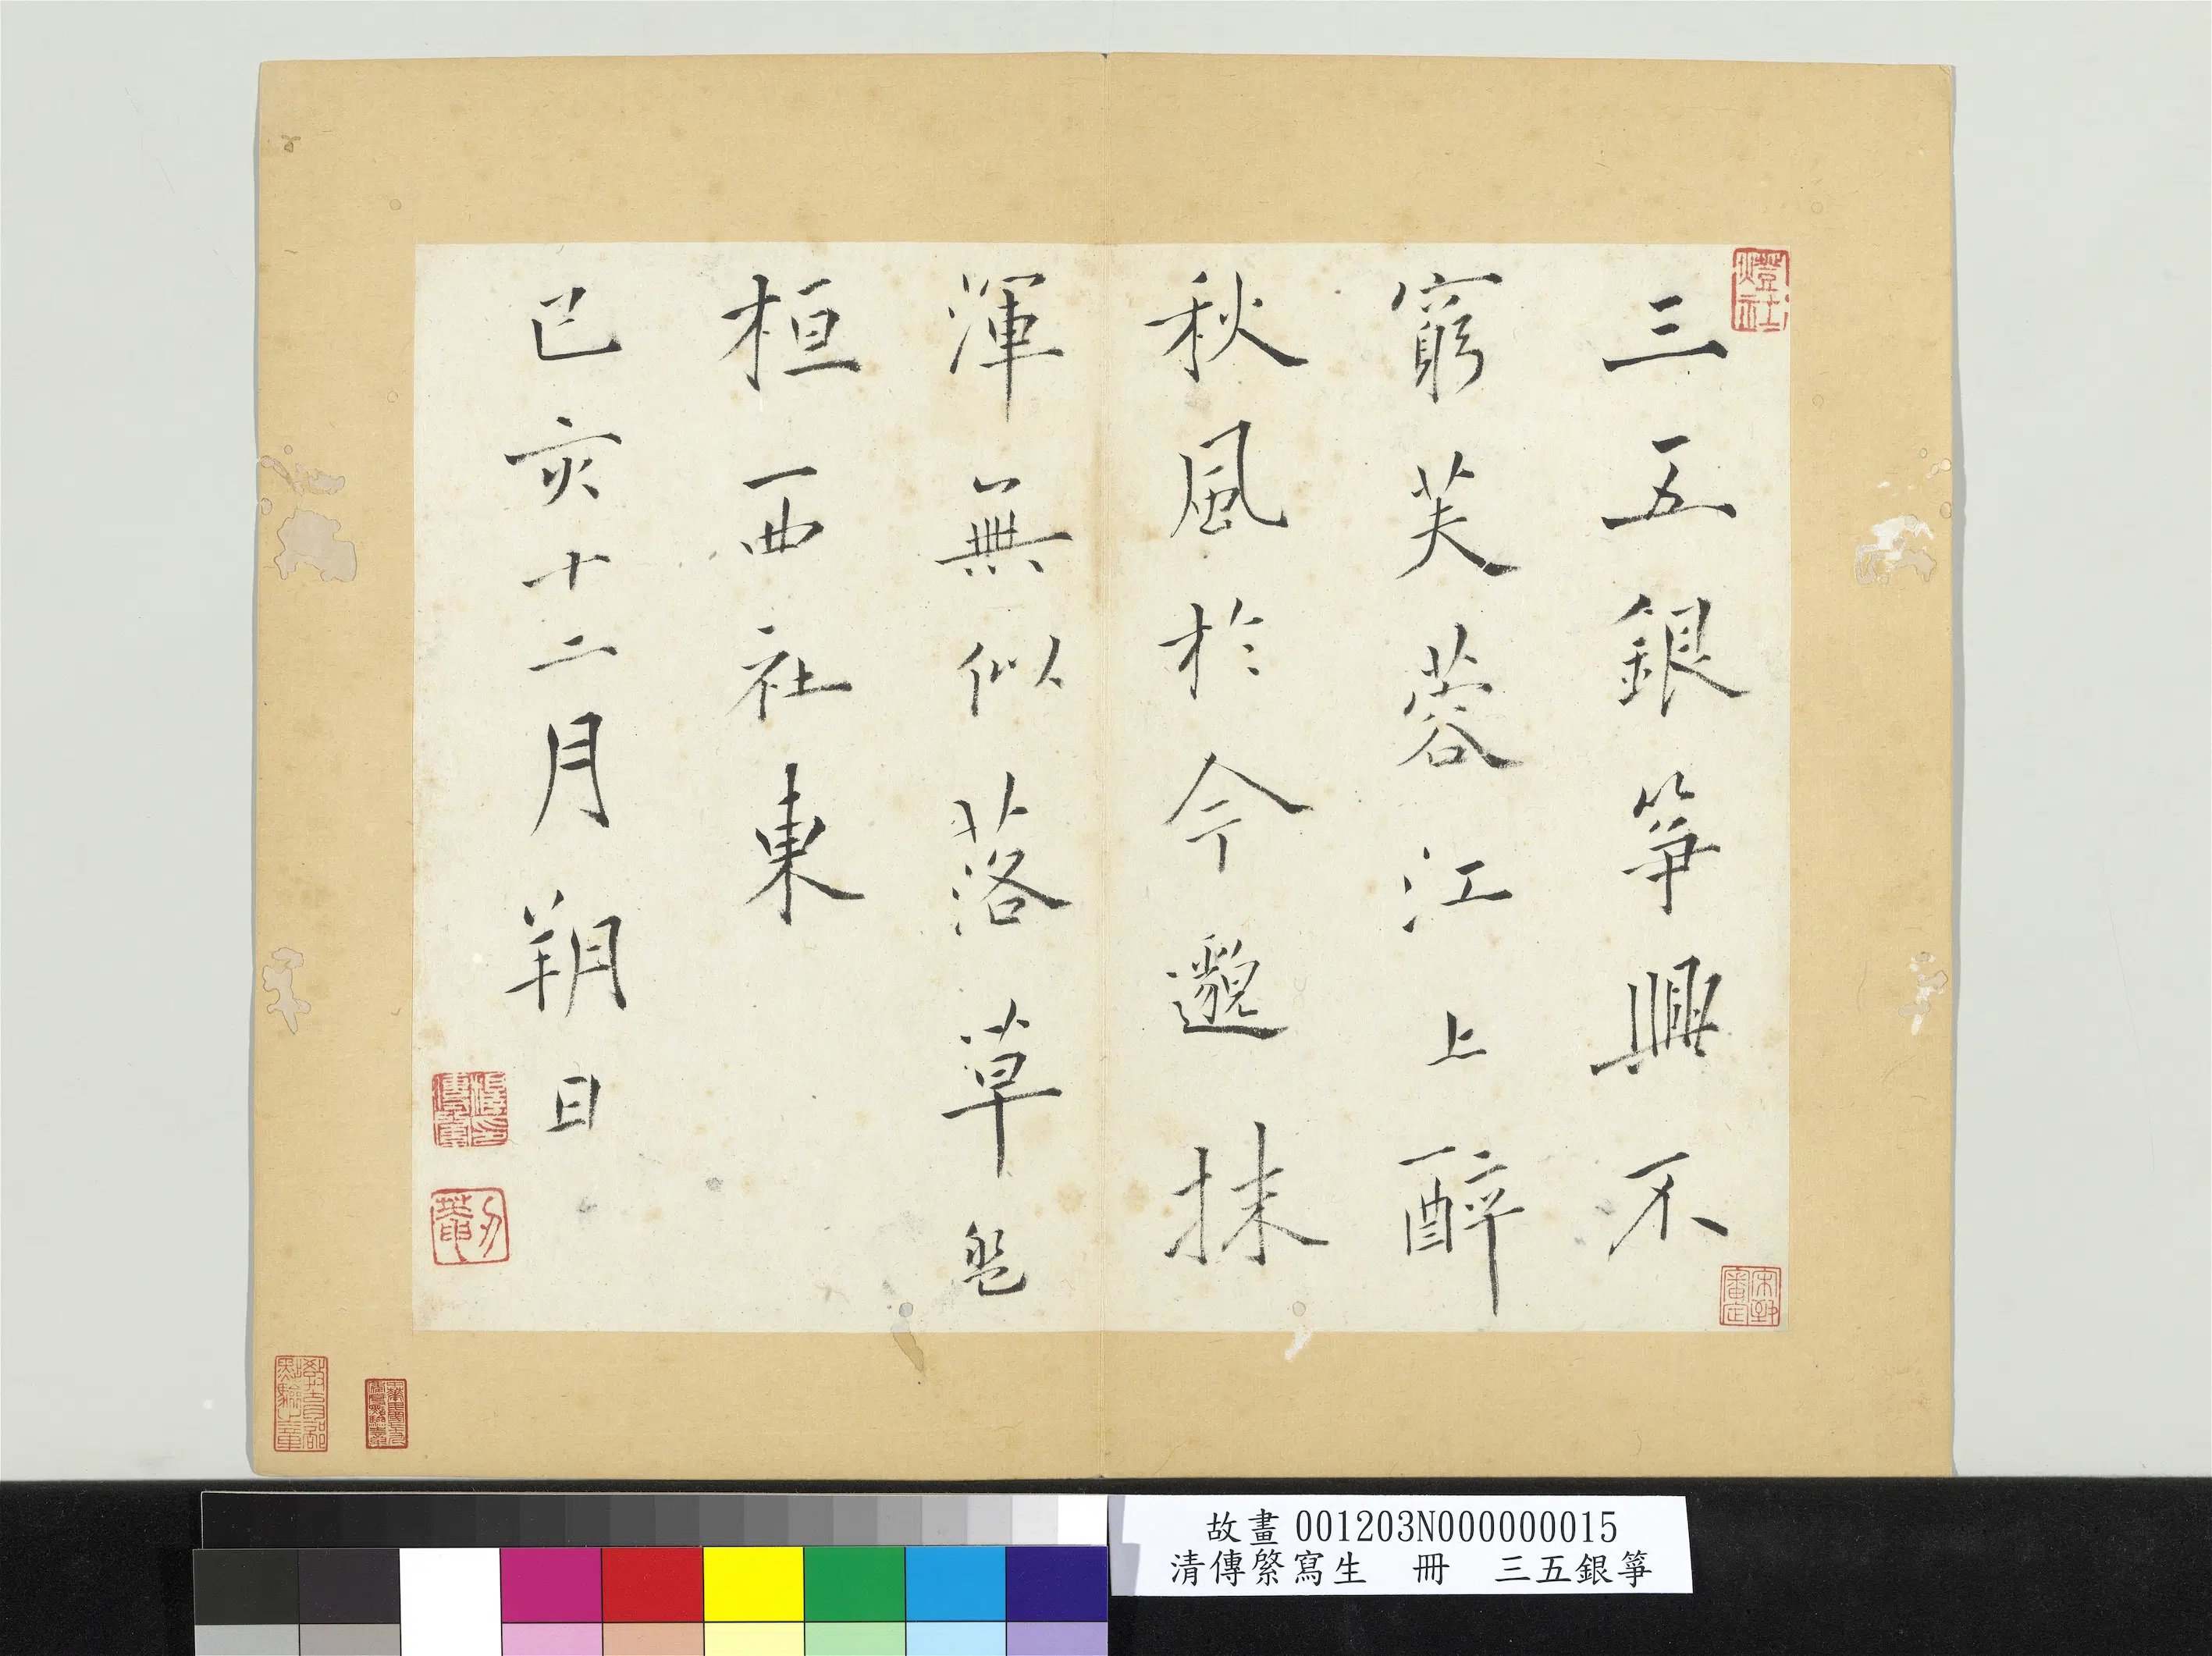 三五銀箏興不
窮芙蓉江上醉
秋風於今邈抹
渾無似落草盤
桓西社東
己亥十二月朔日
燈社
故畫001203N000000015
清傳綮寫生 冊 三五銀箏